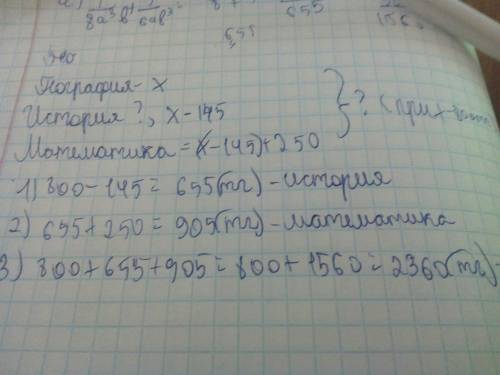 a) 1/8a³b + 1/6ab³ = 8 + 655
156
655
География - x
История ?, x - 145 } ?
Математика = (x - 145) + 250
1) 800 - 145 = 655(тг) - история
2) 655 + 250 = 905(тг) - математика
3) 800 + 655 + 905 = 800 + 1560 = 2360(тг) -